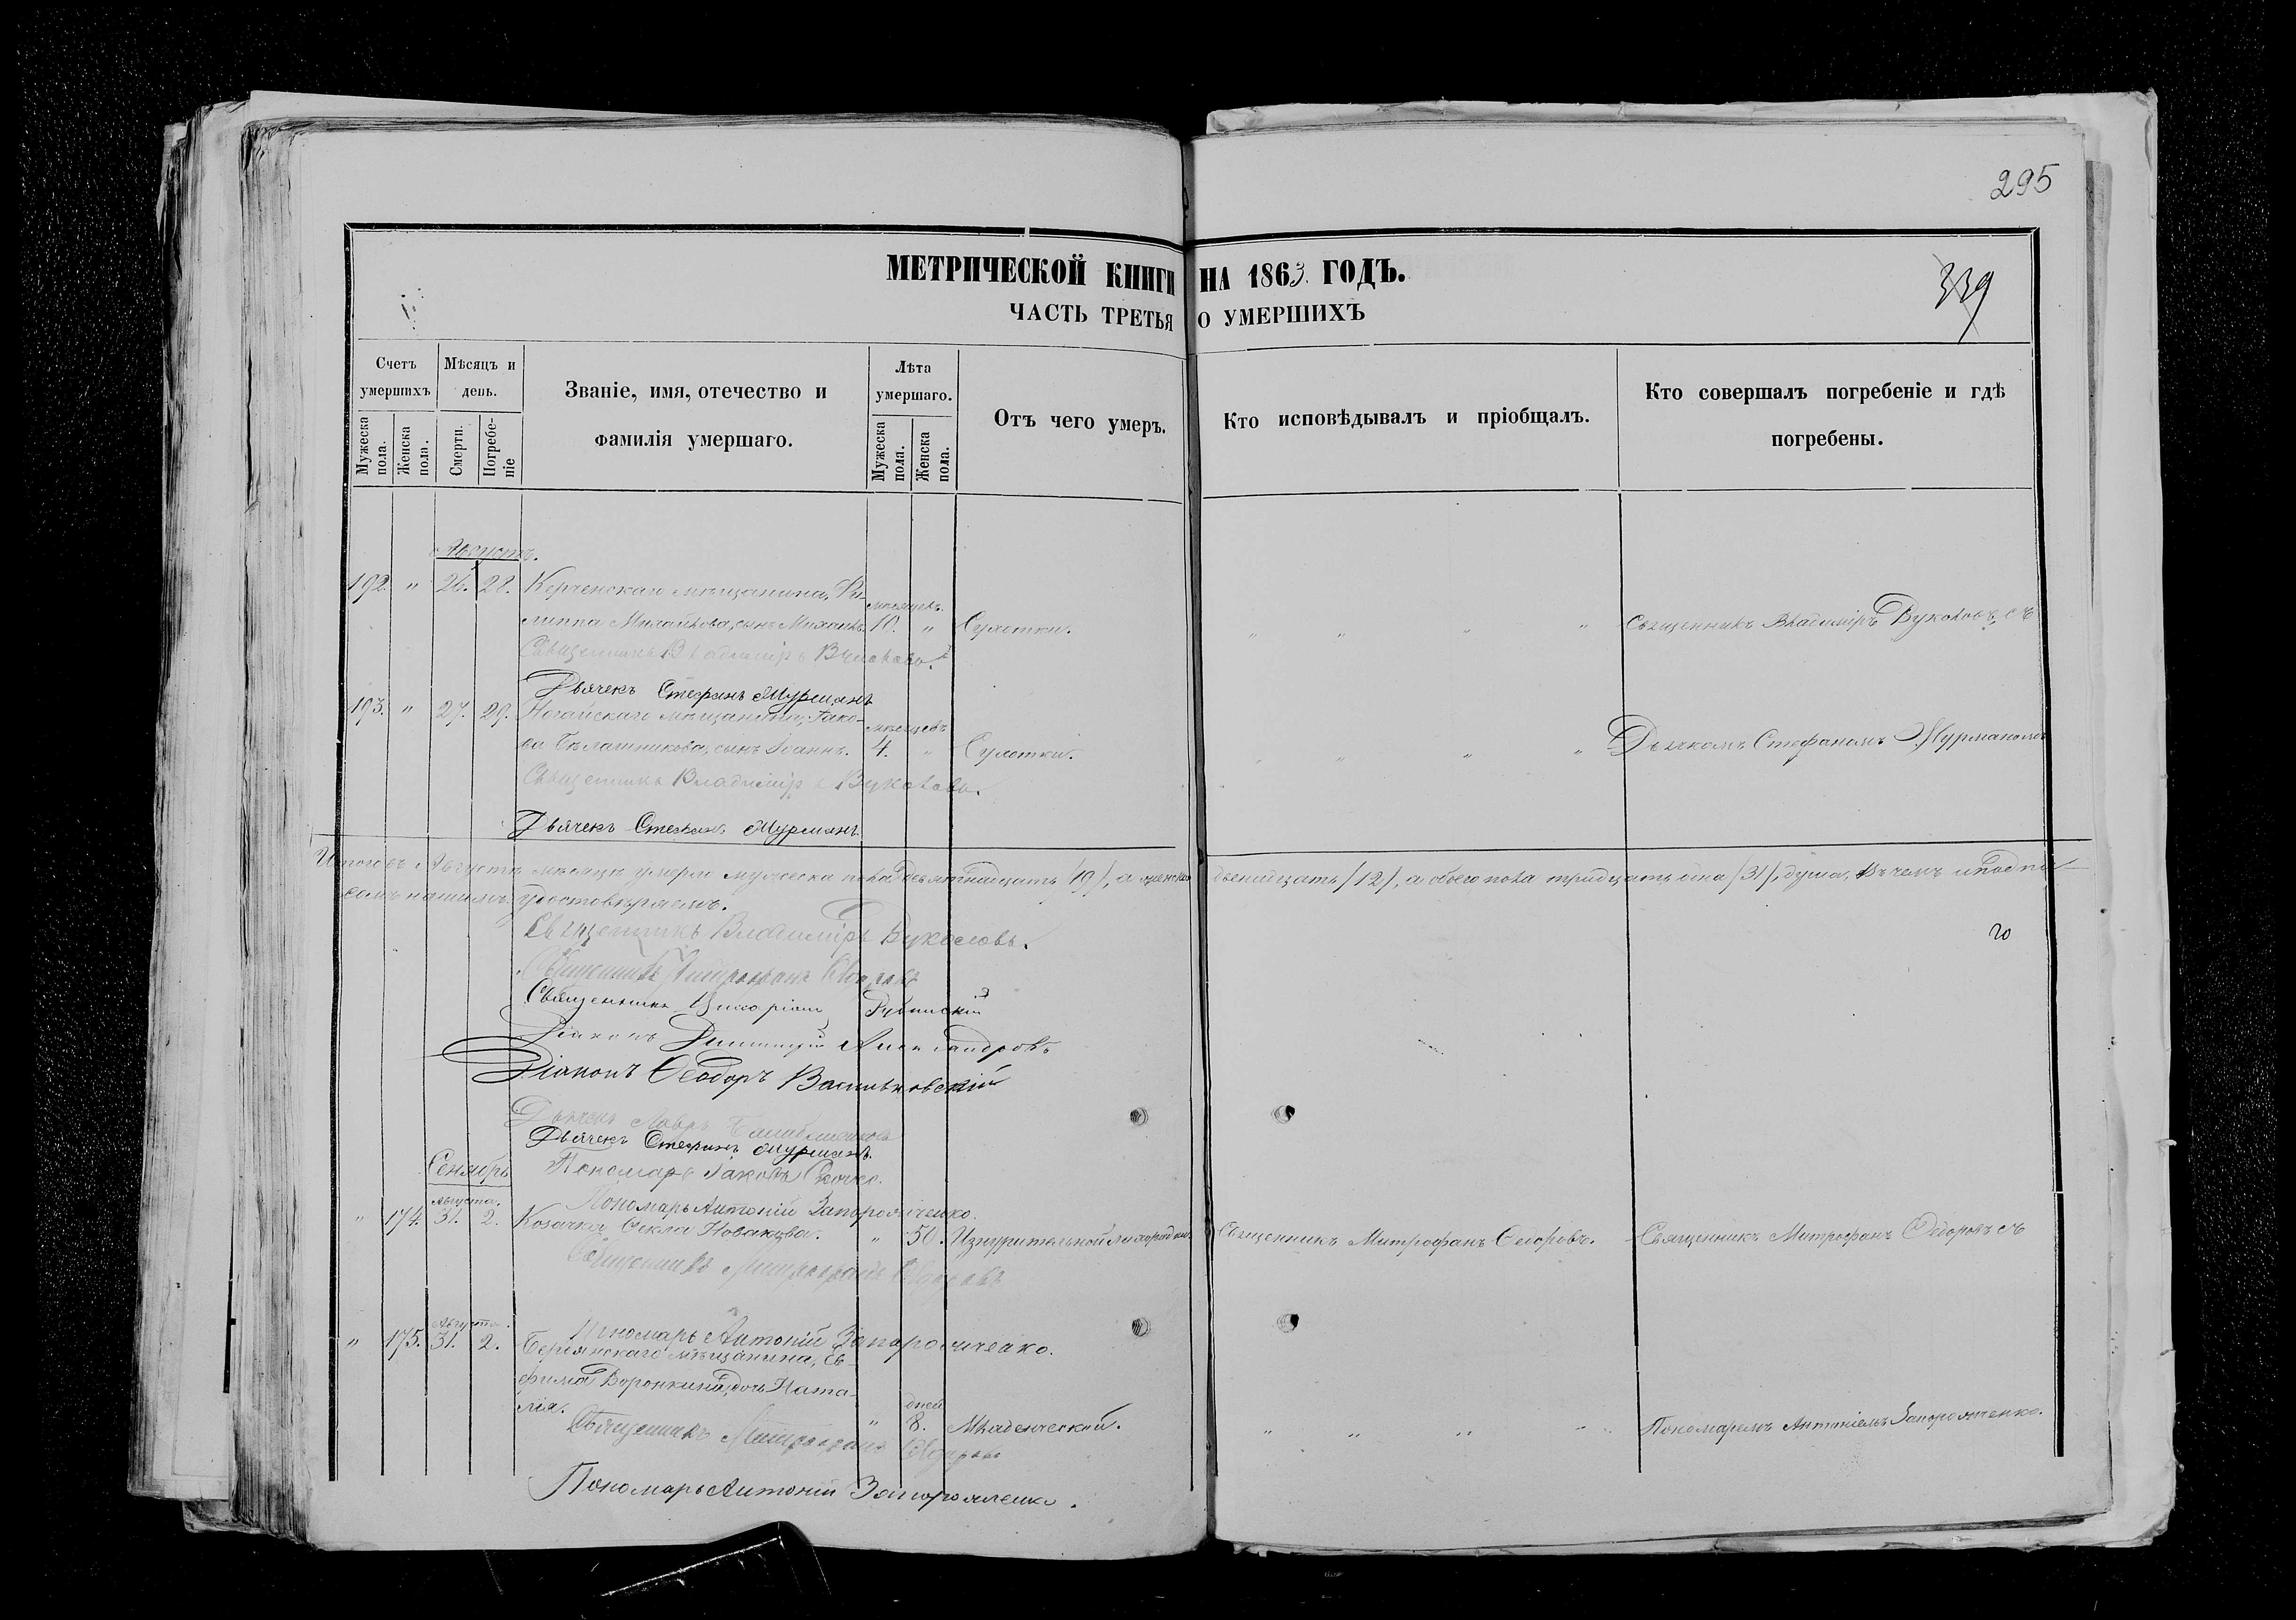 295
МЕТРИЧЕСКОЙ КНИГИ НА 1863. ГОДЪ.
339
ЧАСТЬ ТРЕТЬЯ О УМЕРШИХЪ
Счетъ умершихъ
Мѣсяцъ и день.
Званіе, имя, отечество и фамилія умершаго.
Лѣта умершаго.
Отъ чего умеръ.
Кто исповѣдывалъ и пріобщалъ.
Кто совершалъ погребеніе и гдѣ погребены.
Мужеска пола.
Женска пола.
Смерти.
Погребеніе
Мужеска пола.
Женска пола.
Августъ.
192. " 26. 28. Керченскаго мѣщанина, Фи-
мѣсяцевъ
липпа Михайлова, сынъ Михаилъ. 10. " Сухотки. " " " " Священникъ Владиміръ Вуколовъ, съ
Священникъ Владиміръ Вуколовъ.
Дьячекъ Стефанъ Мурманъ
193. " 27. 29. Ногайскаго мѣщанина, Іако-
мѣсяцевъ
ва сынъ Іоаннъ. 4. " Сухотки. " " " " Дьячкомъ Стефаномъ Мурманомъ
Священникъ Владиміръ Вуколовъ.
Дьячекъ Стефанъ Мурманъ.
Итого въ Августѣ мѣсяцѣ умерло мужеска пола девятнадцать /19/, а женска двенадцать /12/, а обоего пола тридцать одна /31/, душа, въ чемъ и подпи-
сомъ нашимъ удостовѣряемъ.
Священникъ Владиміръ Вуколовъ.
20
Священникъ Митрофанъ Ѳедоровъ
Священникъ
Діаконъ Димитрій Александровъ
Діаконъ Ѳеодоръ Васильковскій
Дьячекъ Лавръ
Дьячекъ Стефанъ Мурманъ.
Сентябрь
Пономарь Іаковъ
Августа.
Пономарь Антоній Запорожченко.
" 174. 31. 2. Козачка Ѳекла Новакова. " 50. Изнурительной лихорадки. Священникъ Митрофанъ Ѳедоровъ. Священникъ Митрофанъ Ѳедоровъ съ
Священникъ Митрофанъ Ѳедоровъ
Августа.
Пономарь Антоній Запорожченко.
" 175. 31. 2. Бердянскаго мѣщанина, Ев-
фима Воронкина, дочь Ната-
лія. дней
" 8. Младенческой. " " " " Пономаремъ Антоніемъ Запорожченко.
Священникъ Митрофанъ Ѳедоровъ
Пономарь Антоній Запорожченко.